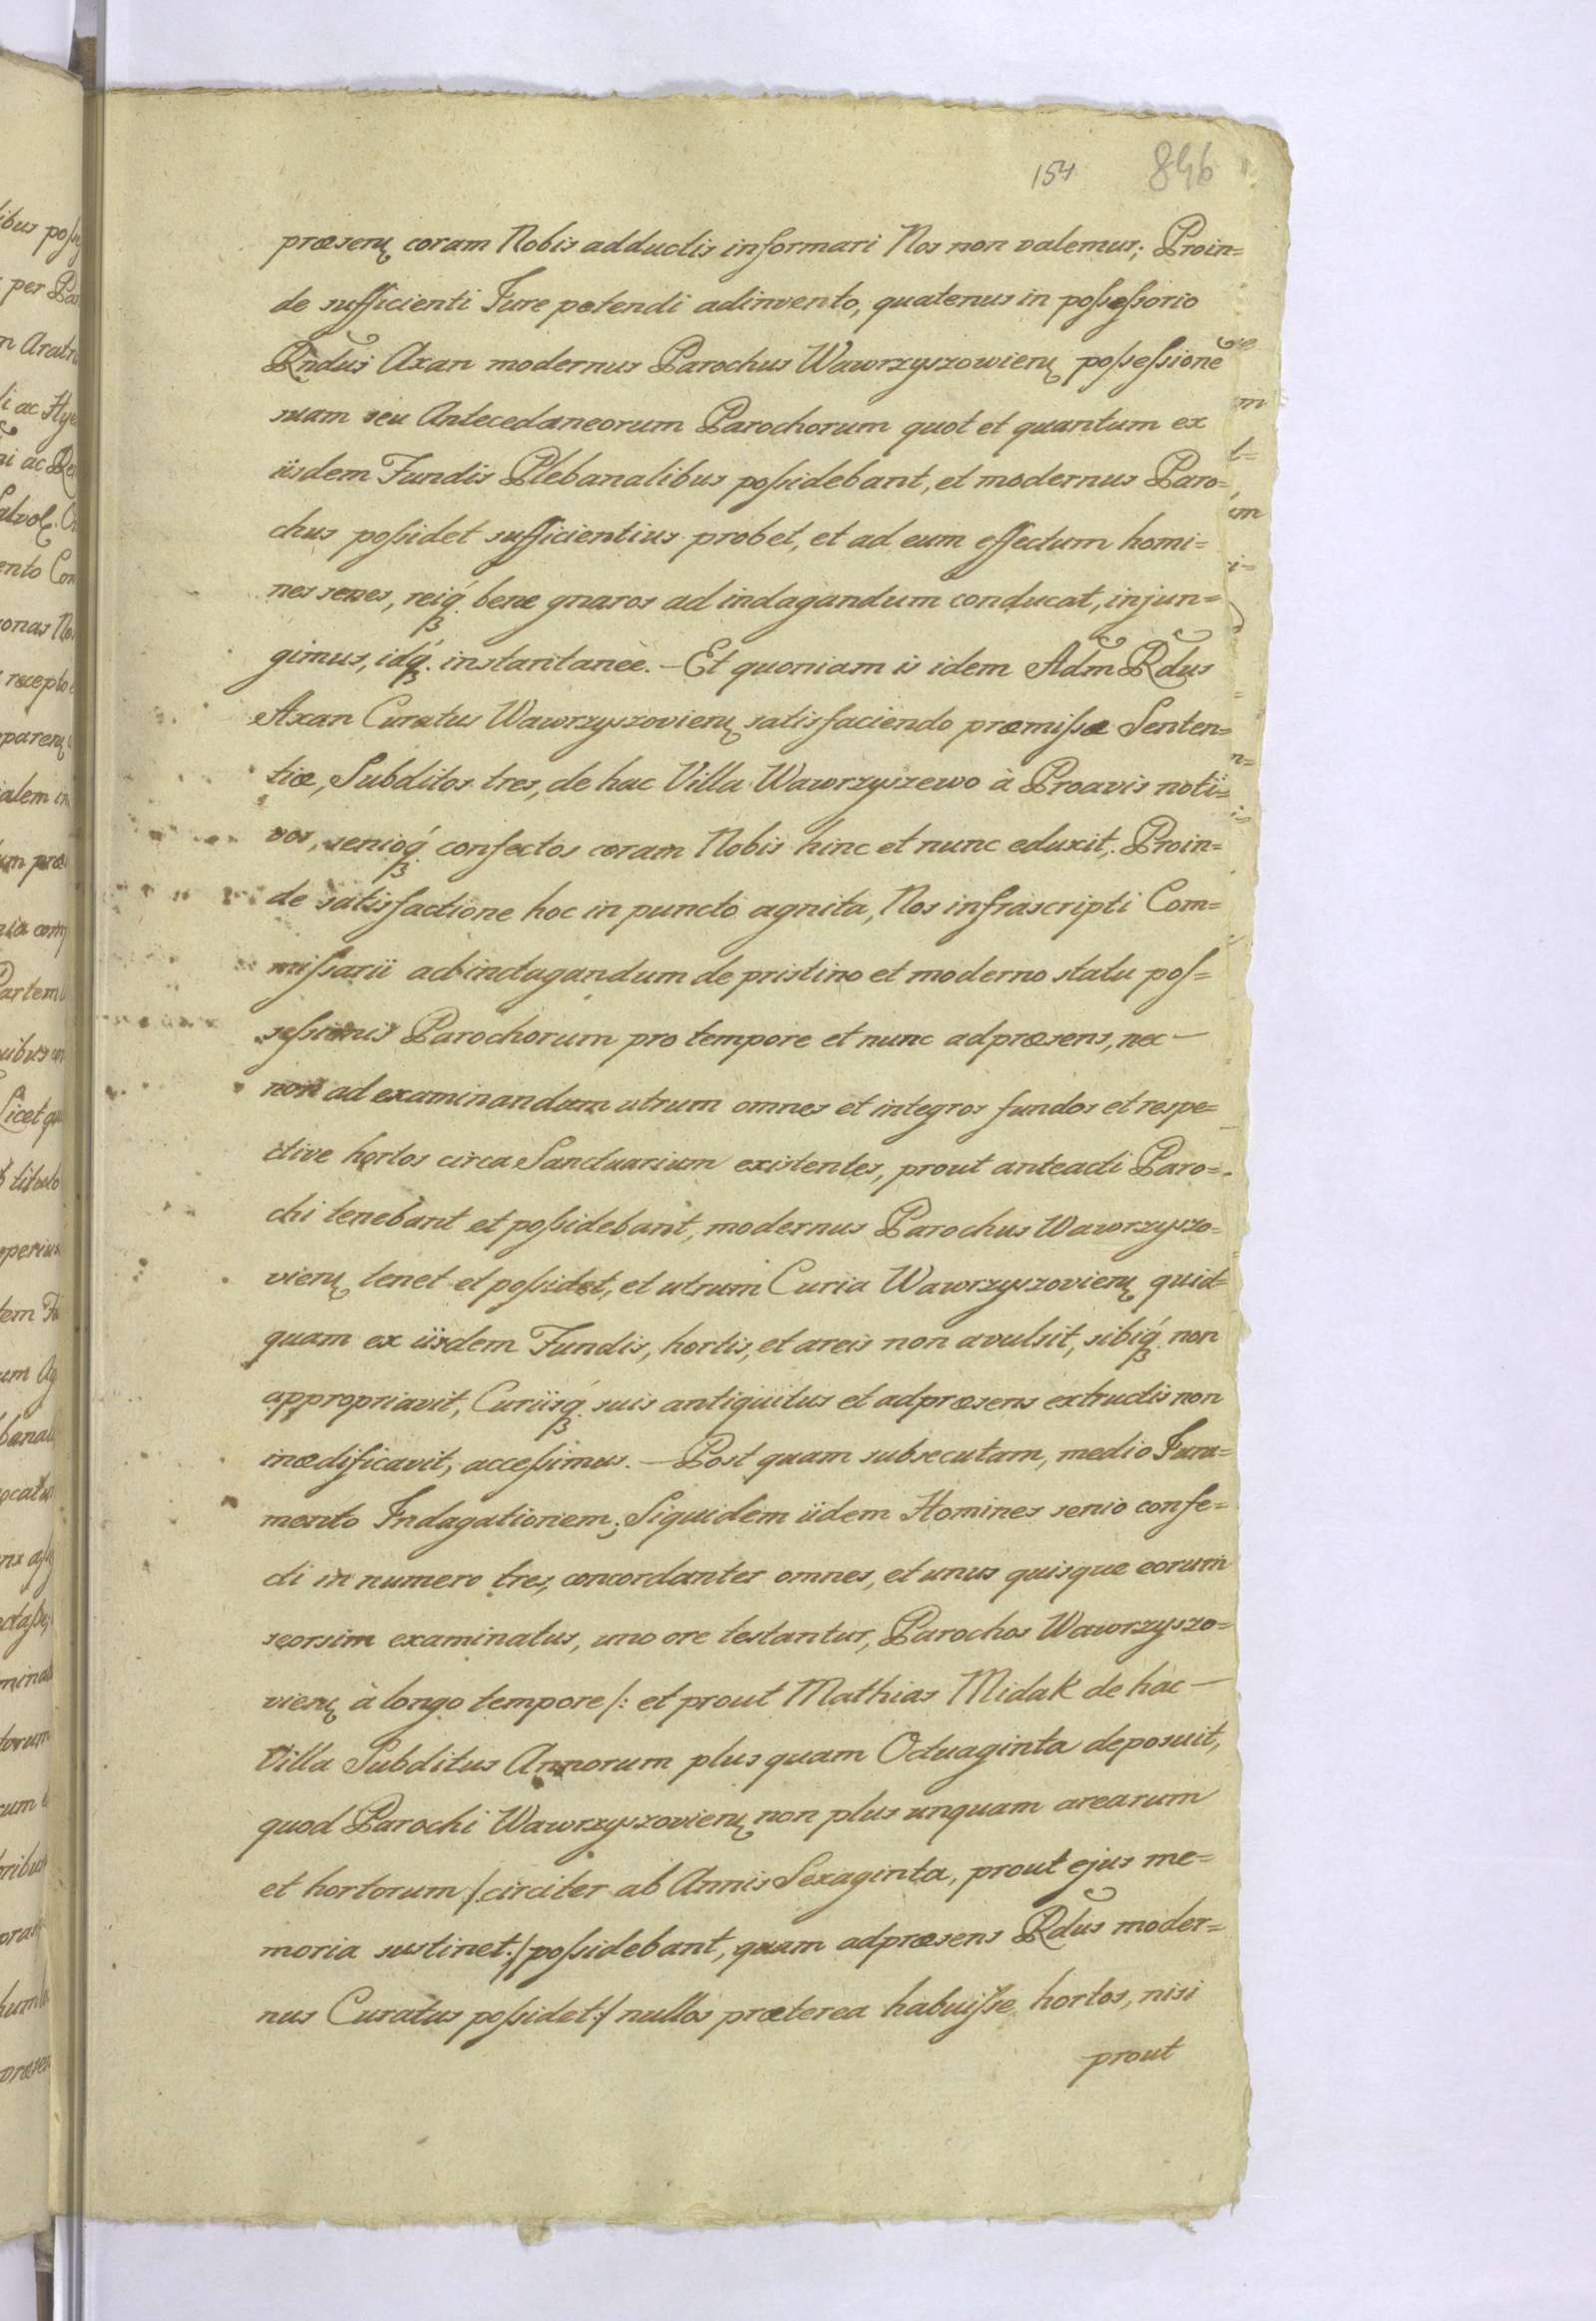 154 846
præsenţ coram Nobis adductis informari Nos non valemus; Proin=
de sufficienti Jure petendi adinvento, quatenus in poſseſsorio
Rndus Axan modernus Parochus Wawrzyszowienţ poſseſsionē
suam seu Antecedaneorum Parochorum quot et quantum ex
iisdem Fundis Plebanalibus poſsidebant, et modernus Paro=
chus poſsidet sufficientius probet, et ad eum effectum homi=
nes senes, reiq́ʒ bene gnaros ad indagandum conducat, injun=
gimus, idq́ʒ instantaneè. – Et quoniam is idem Adm Rdus
Axan Curatus Wawrzyszovienţ satisfaciendo præmiſsæ Senten=
tiæ, Subditos tres, de hac Villa Wawrzyszewo à Proavis noti=
vos, senioq́ʒ confectos coram Nobis hinc et nunc eduxit; Proin=
de satisfactione hoc in puncto agnita, Nos infrascripti Com=
miſsarii ad indagandum de pristino et moderno statu poſ=
seſsionis Parochorum pro tempore et nunc ad præsens, nec –
non ad examinandum utrum omnes et integros fundos et respe=
ctive hortos circa Sanctuarium existentes, prout anteacti Paro=
chi tenebant et poſsidebant, modernus Parochus Wawrzyszo=
vienţ tenet et poſsidet, et utrum Curia Wawrzyszovienţ quid=
quam ex iisdem Fundis, hortis, et areis non avulsit, sibiq́ʒ non
appropriavit, Curiisq́ʒ suis antiquitus et ad præsens extructis non
inædificavit, acceſsimus. – Post quam subsecutam, medio Jura=
mento Indagationem; Siquidem iidem Homines senio confe=
cti in numero tres, concordanter omnes, et unus quisque eorum
seorsim examinatus, uno ore testantur, Parochos Wawrzyszo=
vienţ à longo tempore /: et prout Mathias Midak de hac –
Villa Subditus Annorum plus quam Octuaginta deposuit,
quod Parochi Wawrzyszovienţ non plus unquam arearum
et hortorum /: circiter ab Annis Sexaginta, prout ejus me=
moria sustinet :/ poſsidebant, quam ad præsens Rdus moder=
nus Curatus poſsidet :/ nullos præterea habuiſse hortos, nisi
prout